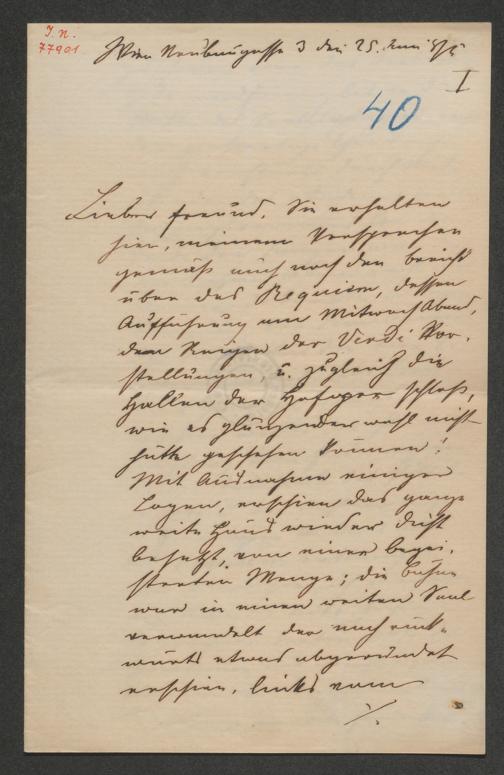 I. N.
77901
Wien Neubaugasse 3 den 25. Juni 875
I
40
Lieber Freund. Sie erhalten
hier, meinem Versprechen
gemäß auch noch den Bericht
über das Requiem, dessen
Aufführung am Mittwoch Abend,
den Reigen der Verdi Vor-
stellungen, u. zugleich die
Hallen der Hofoper schloß,
wie es glänzender wohl nicht
hätte geschehen können!
Mit Ausnahme einiger
Logen, erschien das ganze
weite Haus wieder dicht
besetzt, von einer begei-
sterten Menge; die Bühne
war in einen weiten Saal
verwandelt der nach rück-
wärts etwas abgerundet
erschien, links vom
./.